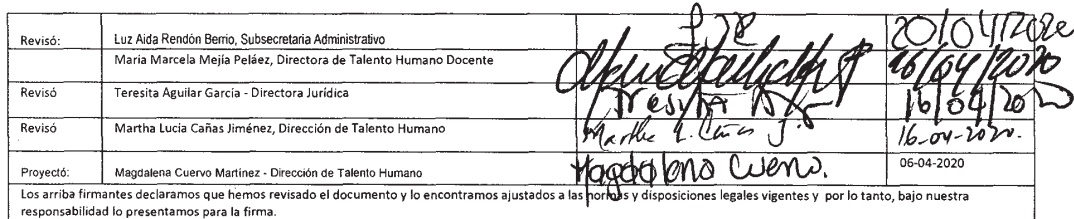 Revisó: Luz Aida Rendón Berrio, Subsecretaria Administrativo 20/04/2020
Maria Marcela Mejía Peláez, Directora de Talento Humano Docente 16/04/2020
Revisó Teresita Aguilar García - Directora Jurídica Teresita 16/04/20
Revisó Martha Lucia Cañas Jiménez, Dirección de Talento Humano Martha L. Cañas J. 16-04-2020.
Proyectó: Magdalena Cuervo Martinez - Dirección de Talento Humano Magdalena Cuervo. 06-04-2020
Los arriba firmantes declaramos que hemos revisado el documento y lo encontramos ajustados a las normas y disposiciones legales vigentes y por lo tanto, bajo nuestra
responsabilidad lo presentamos para la firma.